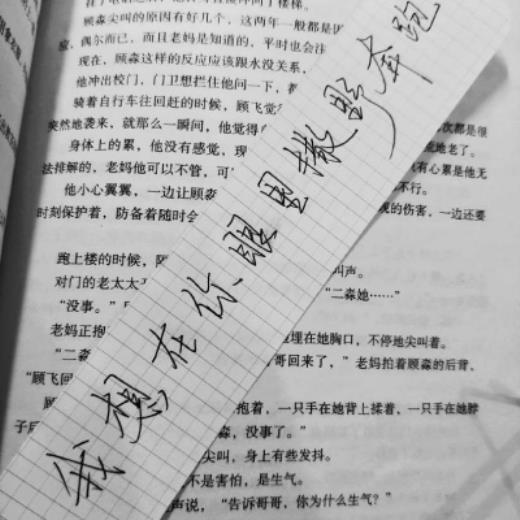 顾淼尖叫的原因有好几个，这两年一般都是因
应，偶尔而已，而且老妈是知道的，平时也会注
现在，顾淼这样的反应应该跟水没关系，
他冲出校门，门卫想拦住他问一下，都
骑着自行车往回赶的时候，顾飞觉
次都是很
突然地袭来，就那么一瞬间，他觉得
荒地老了。
身体上的累，他没有感觉，现
有心累是他无
法排解的，老妈他可以不管，可
不行。
他小心翼翼，一边让顾淼
的伤害，一边还要
时刻保护着，防备着随时会
跑上楼的时候，
叫声。
对门的老太太
“二淼她……”
“没事。”
老妈正抱
埋在她胸口，不停地尖叫着。
“二淼
哥回来了，”老妈拍着顾淼的后背，
“顾飞回
顾
抱着，一只手在她背上揉着，一只手在她脖
子后
淼，没事了。”
尖叫，身上有些发抖。
不是害怕，是生气。
声说，“告诉哥哥，你为什么生气？”
我想在你眼里撒野奔跑